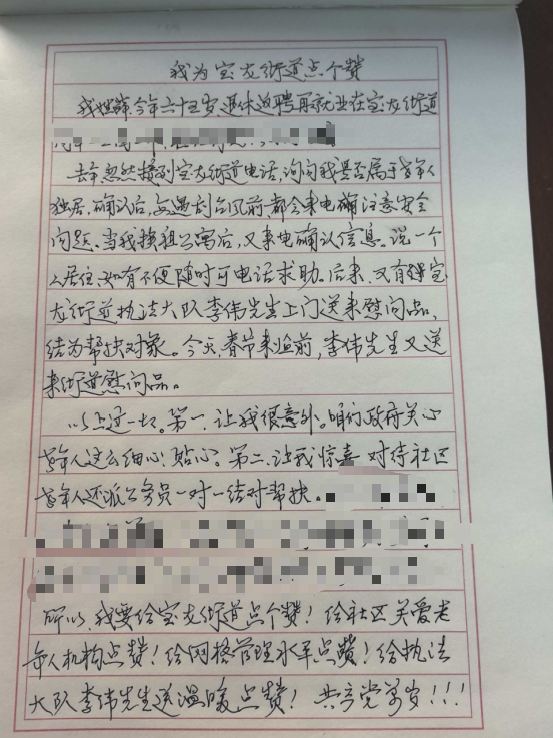 我为宝龙街道点个赞
我姓薛,今年六十五岁,退休返聘再就业在宝龙街道
去年忽然接到宝龙街道电话,询问我是否属于老年人
独居,确认后,每遇刮台风前,都会来电确注意安全
问题。当我换租公寓后,又来电确认信息。说一个
人居住,如有不便随时可电话求助。后来,又有
龙街道执法大队李伟先生上门送来慰问品,
结为帮扶对象。今天,春节来临前,李伟先生又送
来街道慰问品。
以上这一切。第一,让我很意外。咱们政府关心
老年人这么细心!贴心。第二,让我惊喜 对待社区
老年人还派公务员一对一结对帮扶。
所以,我要给宝龙街道点个赞!给社区关爱老
年人机构点赞!给网格管理水平点赞!给执法
大队李伟先生送温暖点赞!共产党万岁!!!